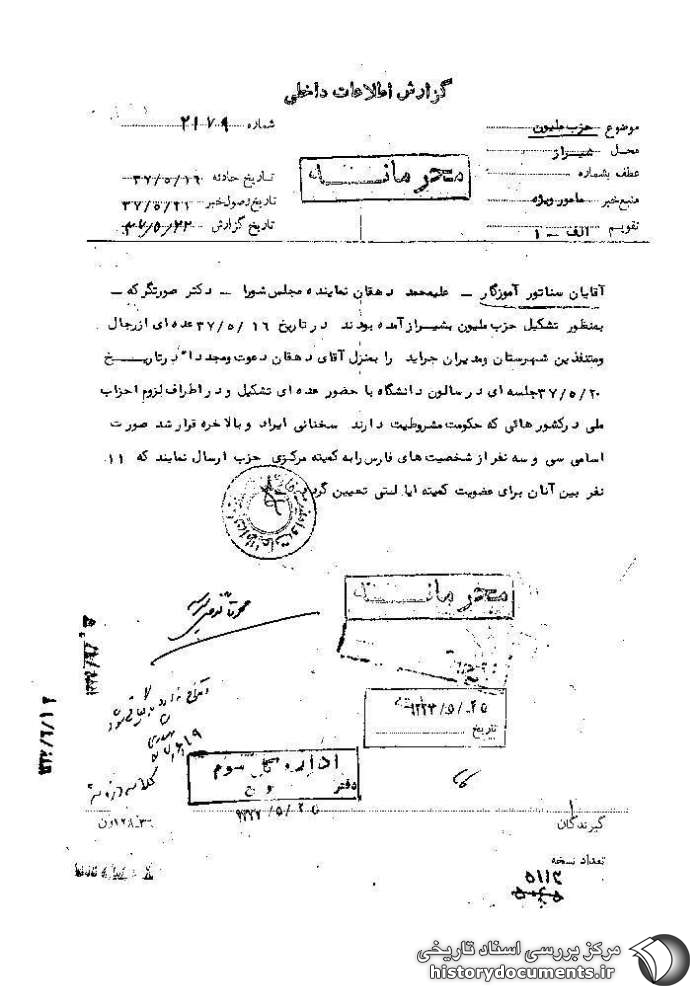 گزارش اطلاعات داخلی
موضوع حزب ملیون
محل شیراز
عطف بشماره
منبع خبر مامور ویژه
تقویم الف - ۱
شماره ۲۱۷۹
محرمانه
تاریخ حادثه ۳۷/۵/۱۶
تاریخ وصول خبر ۳۷/۵/۲۱
تاریخ گزارش ۳۷/۵/۲۲
آقایان سناتور آموزگار - علیمحمد دهقان نماینده مجلس شورا - دکتر صورتگر که -
بمنظور تشکیل حزب ملیون بشیراز آمده بودند در تاریخ ۳۷/۵/۱۶ عده ای از رجال
ومتنفذین شهرستان ومدیران جراید را بمنزل آقای دهقان دعوت ومجددا در تاریخ
۳۷/۵/۲۰ جلسه ای در سالون دانشگاه با حضور عده ای تشکیل و در اطراف لزوم احزاب
ملی در کشور هائی که حکومت مشروطیت دارند سخنانی ایراد و بالاخره قرار شد صورت
اسامی سی و سه نفر از شخصیت های فارس را به کمیته مرکزی حزب ارسال نمایند که ۱۱
نفر بین آنان برای عضویت کمیته ایالتی تعیین گردد
محرمانه
تاریخ
اداره کل سوم
دفتر
گیرندگان
تعداد نسخه
۵۱۱۲
مرکز بررسی اسناد تاریخی
historydocuments.ir